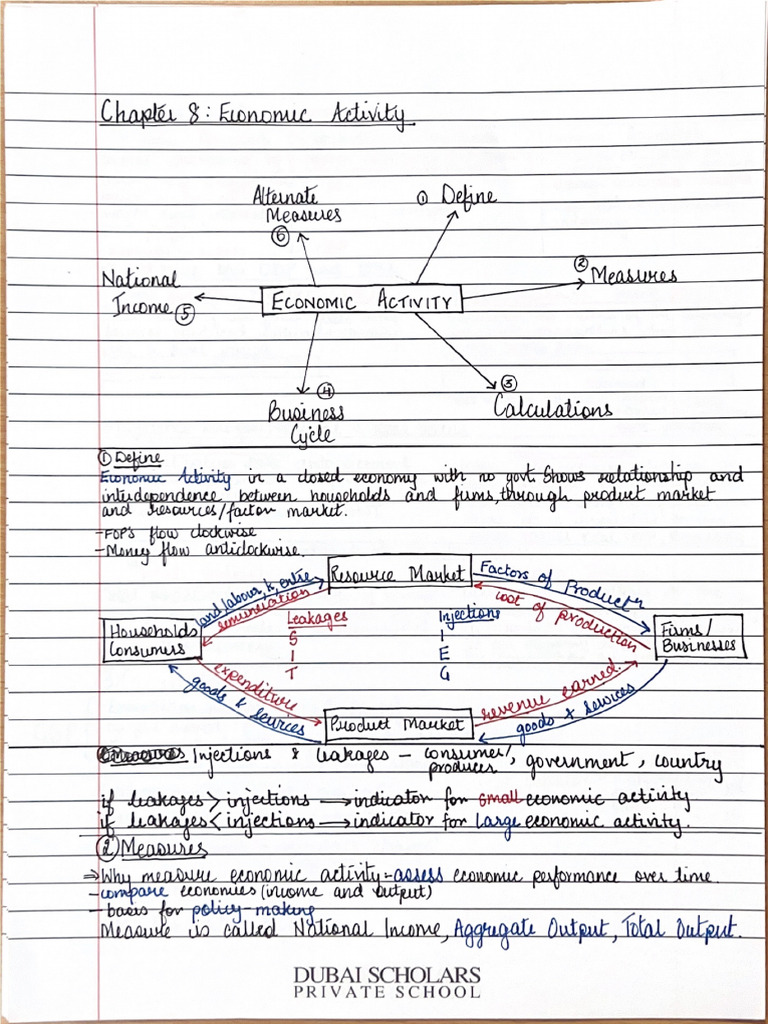 Chapter 8: Economic Activity
Alternate
Measures
⑥
① Define
② Measures
National
Income ⑤
ECONOMIC ACTIVITY
④
Business
Cycle
③
Calculations
① Define
Economic Activity in a closed economy with no govt. Shows relationship and
interdependence between households and firms, through product market
and resources/factor market.
- FOP's flow clockwise
- Money flow anticlockwise.
Resource Market
land, labour, k, entre
remuneration
Factors of Product
cost of production
Households
Consumers
Leakages
S
I
T
Injections
I
E
G
Firms/
Businesses
expenditure
goods & services
Product Market
revenue earned.
goods & services
Measures Injections & leakages – consumer/, government, country
produces
if leakages > injections → indicator for small economic activity
if leakages < injections → indicator for Large economic activity.
② Measures
⇒ Why measure economic activity - assess economic performance over time.
- compare economies (income and output)
- basis for policy-making
Measure is called National Income, Aggregate Output, Total Output.
DUBAI SCHOLARS
PRIVATE SCHOOL